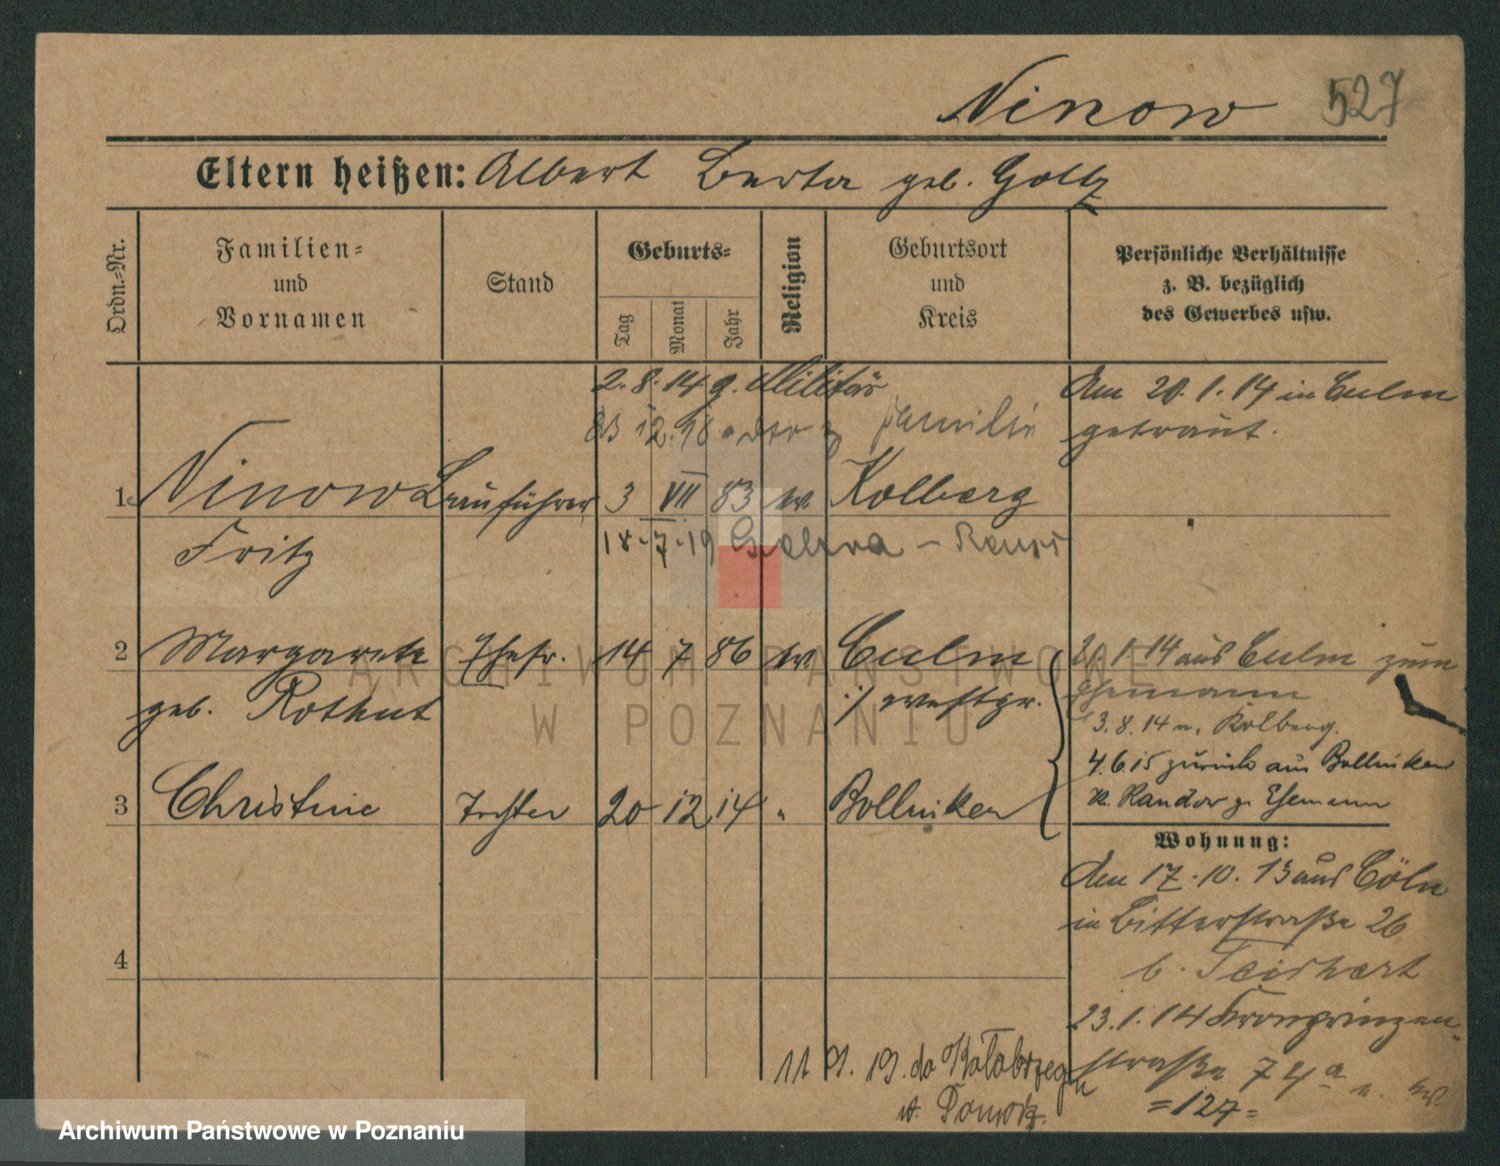 Ninow 527
Eltern heißen: Albert Berta geb. Goltz
Ordn.=Nr.
Familien=
und
Vornamen
Stand
Geburts=
Tag
Monat
Jahr
Religion
Geburtsort
und
Kreis
Persönliche Verhältnisse
z. B. bezüglich
des Gewerbes usw.
2.8.14 z. Militär
12.18 Familie
Am 20.1.14 in Culm
getraut.
1 Ninow Bauführer 3 VII 83 ev. Kolberg
Fritz
18-7-19
2 Margarete Ehefr. 14 7 86 ev. Culm
geb. Rothut
westpr.
21.1.14 aus Culm zum
Ehemann
3.8.14 n. Kolberg.
4.6.15 zurück aus Bollinken
K. Randow z. Ehemann
3 Christine Tochter 20 12 14 " Bollinken
Wohnung:
Am 17.10.13 aus Cöln
in Ritterstraße 26
b.
23.1.14 Kronprinzen-
straße 74a
=127=
4
11 9. 19. do Kołobrzegu
ARCHIWUM PAŃSTWOWE
W POZNANIU
Archiwum Państwowe w Poznaniu